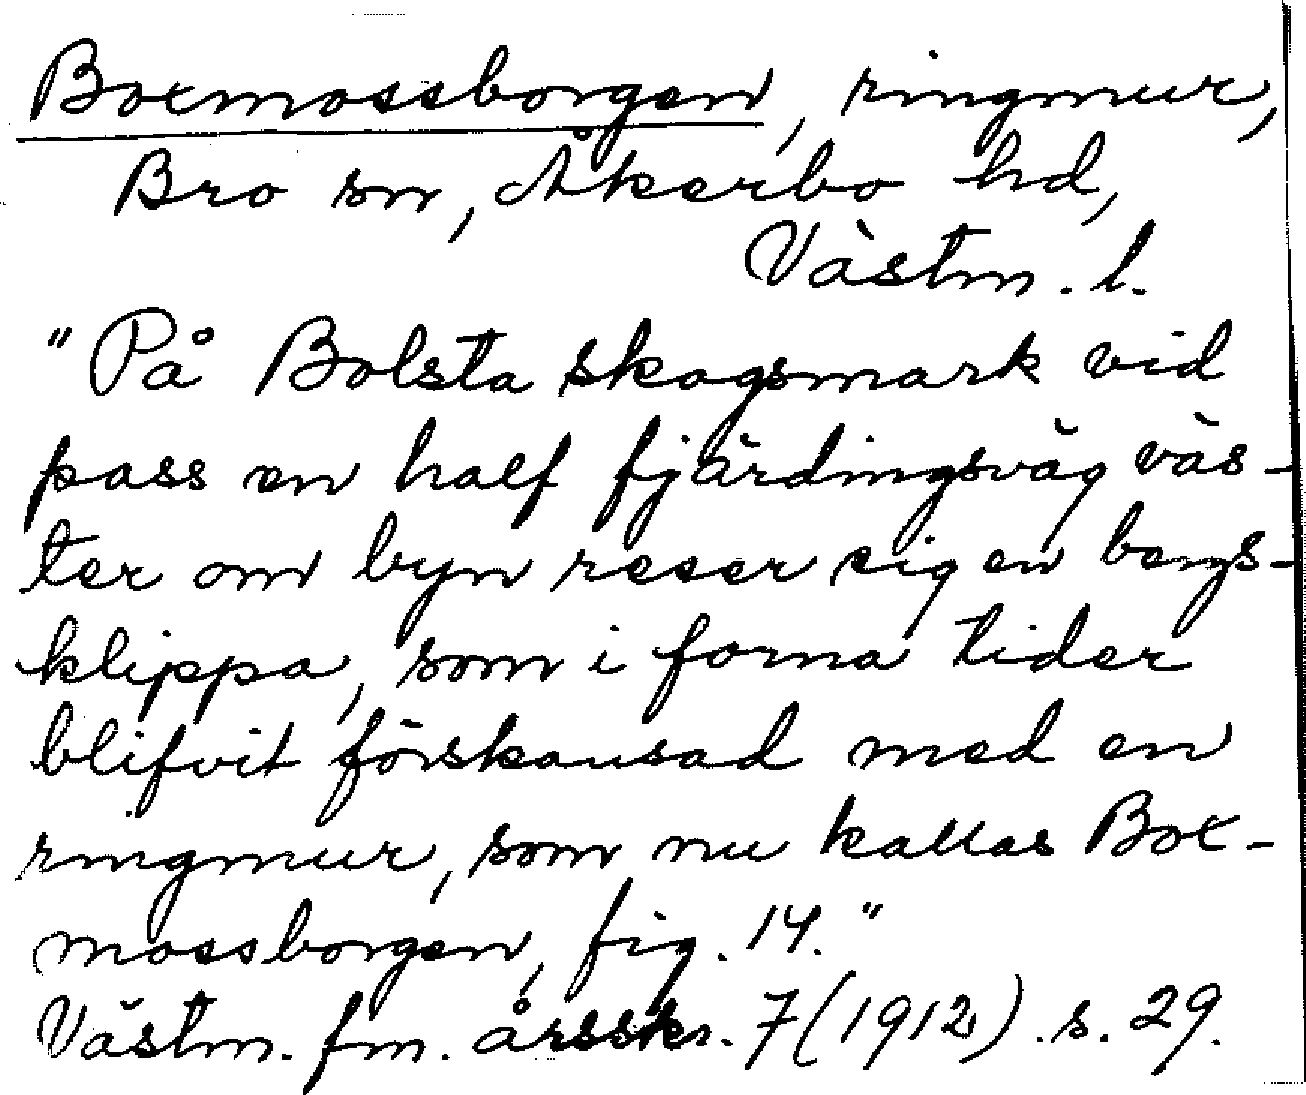 Boxmossborgen, ringmur,
Bro sn, Åkerbo hd,
Västm. l.
"På Bolsta skogsmark vid
pass en half fjärdingsväg väs-
ter om byn reser sig en bergs-
klippa, som i forna tider
blifvit förskansad med en
ringmur, som nu kallas Box-
mossborgen, fig. 14."
Västm. fm. årsskr. 7 (1912). s. 29.